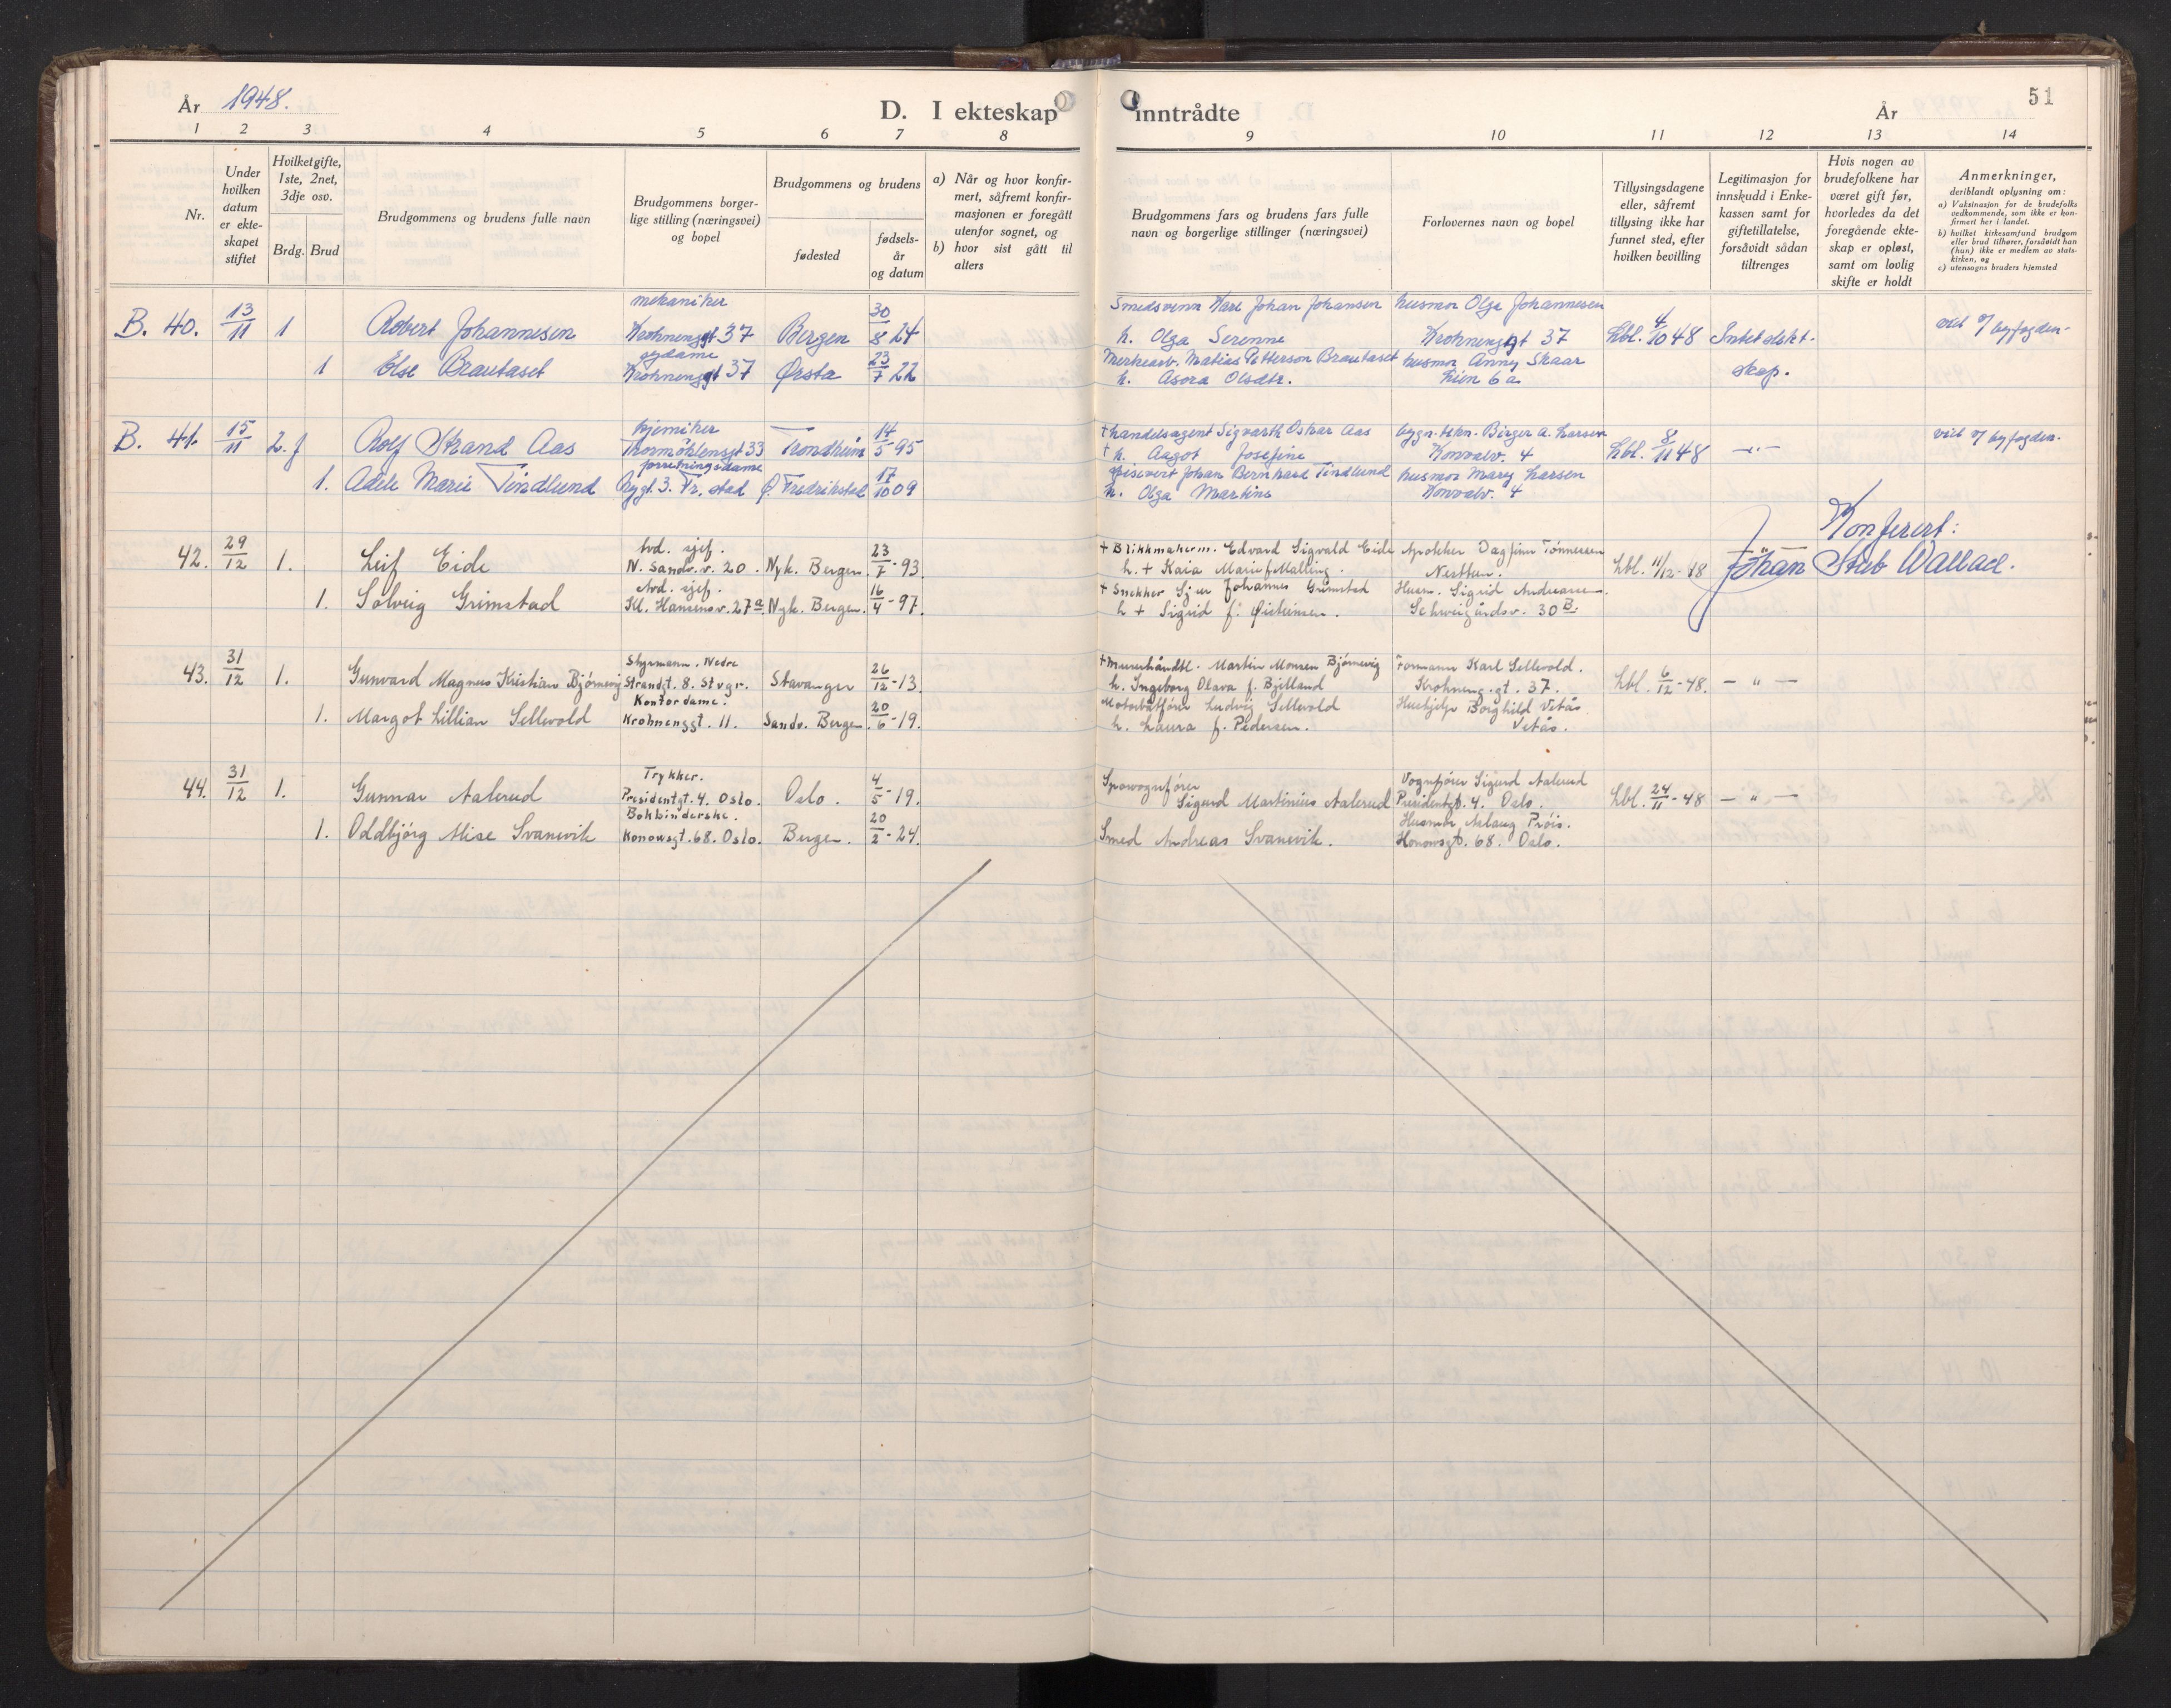 År 1948.
D. I ekteskap inntrådte
År
51
1 2 3 4 5 6 7 8 9 10 11 12 13 14
Nr.
Under hvilken datum er ekte-skapet stiftet
Hvilketgifte, 1ste, 2net, 3dje osv.
Brdg. Brud
Brudgommens og brudens fulle navn
Brudgommens borger-lige stilling (næringsvei) og bopel
Brudgommens og brudens
fødested
fødsels-år og datum
a) Når og hvor konfir-mert, såfremt konfir-masjonen er foregått utenfor sognet, og
b) hvor sist gått til alters
Brudgommens fars og brudens fars fulle navn og borgerlige stillinger (næringsvei)
Forlovernes navn og bopel
Tillysingsdagene eller, såfremt tillysing ikke har funnet sted, efter hvilken bevilling
Legitimasjon for innskudd i Enke-kassen samt for giftetillatelse, forsåvidt sådan tiltrenges
Hvis nogen av brudefolkene har været gift før, hvorledes da det foregående ekte-skap er opløst, samt om lovlig skifte er holdt
Anmerkninger,
deriblandt oplysning om:
a) Vaksinasjon for de brudefolks vedkommende, som ikke er kon-firmert her i landet.
b) hvilket kirkesamfund brudgom eller brud tilhører, forsåvidt han (hun) ikke er medlem av stats-kirken, og
c) utensogns bruders hjemsted
mekaniker
Smedsvenn Kare Johan Johansen husmor Olga Johannesen
B. 40. 13/11 1 Robert Johannesen Krohnengst 37 Bergen 30/8 24 h. Olga Serenne Krohnengst 37 Lbl. 4/10 48 Intet slekt-
viet v/ byfogden.
1 Else Brautaset Krohnengst 37 Ørsta 23/7 22 Matias Petterson Brautaset husmor Anny Skaar
h. Asora Olsdtr. 6a skap.
kjemiker
+ handelsagent Sigvarth Oskar Aas bygn. tekn. Birger A. Larsen
B. 41. 15/11 2. f Rolf Strand Aas Thormöhlensgt 33 Trondheim 14/5 95 + h. Aagot Josefine Konvalv. 4 Lbl. 8/11 48 -"-
viet v/ byfogden.
forretningsdame
1. Adele Marie Tindlund Rygt. 3. Fr. stad Ø. Fredrikstad 17/10 09 Johan Bernhard Tindlund husmor Mary Larsen
h. Olga Martine Konvalv. 4
Konferert:
Johan Stub Wallad.
Avd. sjef.
42. 29/12 1. Leif Eide N. Sandv. v. 20. Nyk. Bergen 23/7-93 + Blikkmakerm. Edvard Sigvald Eide Apoteker Dagfinn Tønnessen
h. + Kaia Marie f. Malling. Nesttun. Lbl. 11/12-48 - " -
Avd. sjef.
1. Solveig Grimstad Kl. Hansensv. 27a Nyk. Bergen. 16/4-97. + Snekker Sjur Johannes Grimstad Husm. Sigrid Andreassen.
h + Sigrid f. Øisteinsen. Schweigårdsv. 30B.
Styrmann. Nedre
43. 31/12 1. Gunvard Magnus Kristian Bjørnevig Strandgt. 8. Stvgr. Stavanger 26/12-13. + Murerhåndtl. Martin Monsen Bjørnevig Formann Karl Sellevold.
h. Ingeborg Olava f. Bjelland Krohneng.gt. 37. Lbl. 6/12-48. - " -
Kontordame.
1. Margot Lillian Sellevold Krohnengsgt. 11. Sandv. Bergen. 20/6-19. Motorbåtfører Ludvig Sellevold Hushjelp Borghild Vetås
h. Laura f. Pedersen. Vetås.
Trykker.
44. 31/12 1. Gunnar Aalerud Presidentgt. 4. Oslo. Oslo. 4/5-19. Sporvognfører Sigurd Martinius Aalerud Vognfører Sigurd Aalerud
Presidentgt. 4. Oslo. Lbl. 24/11-48 - " -
Bokbinderske.
1. Oddbjørg Alise Svanevik Konowsgt. 68. Oslo. Bergen. 20/2-24. Smed Andreas Svanevik. Husmor Aslaug Prøis.
Konowsgt. 68. Oslo.